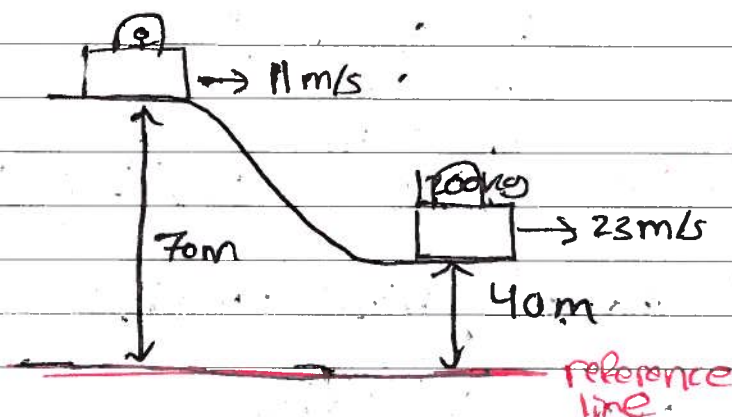 11 m/s
1200kg
23 m/s
70m
40m
reference
line